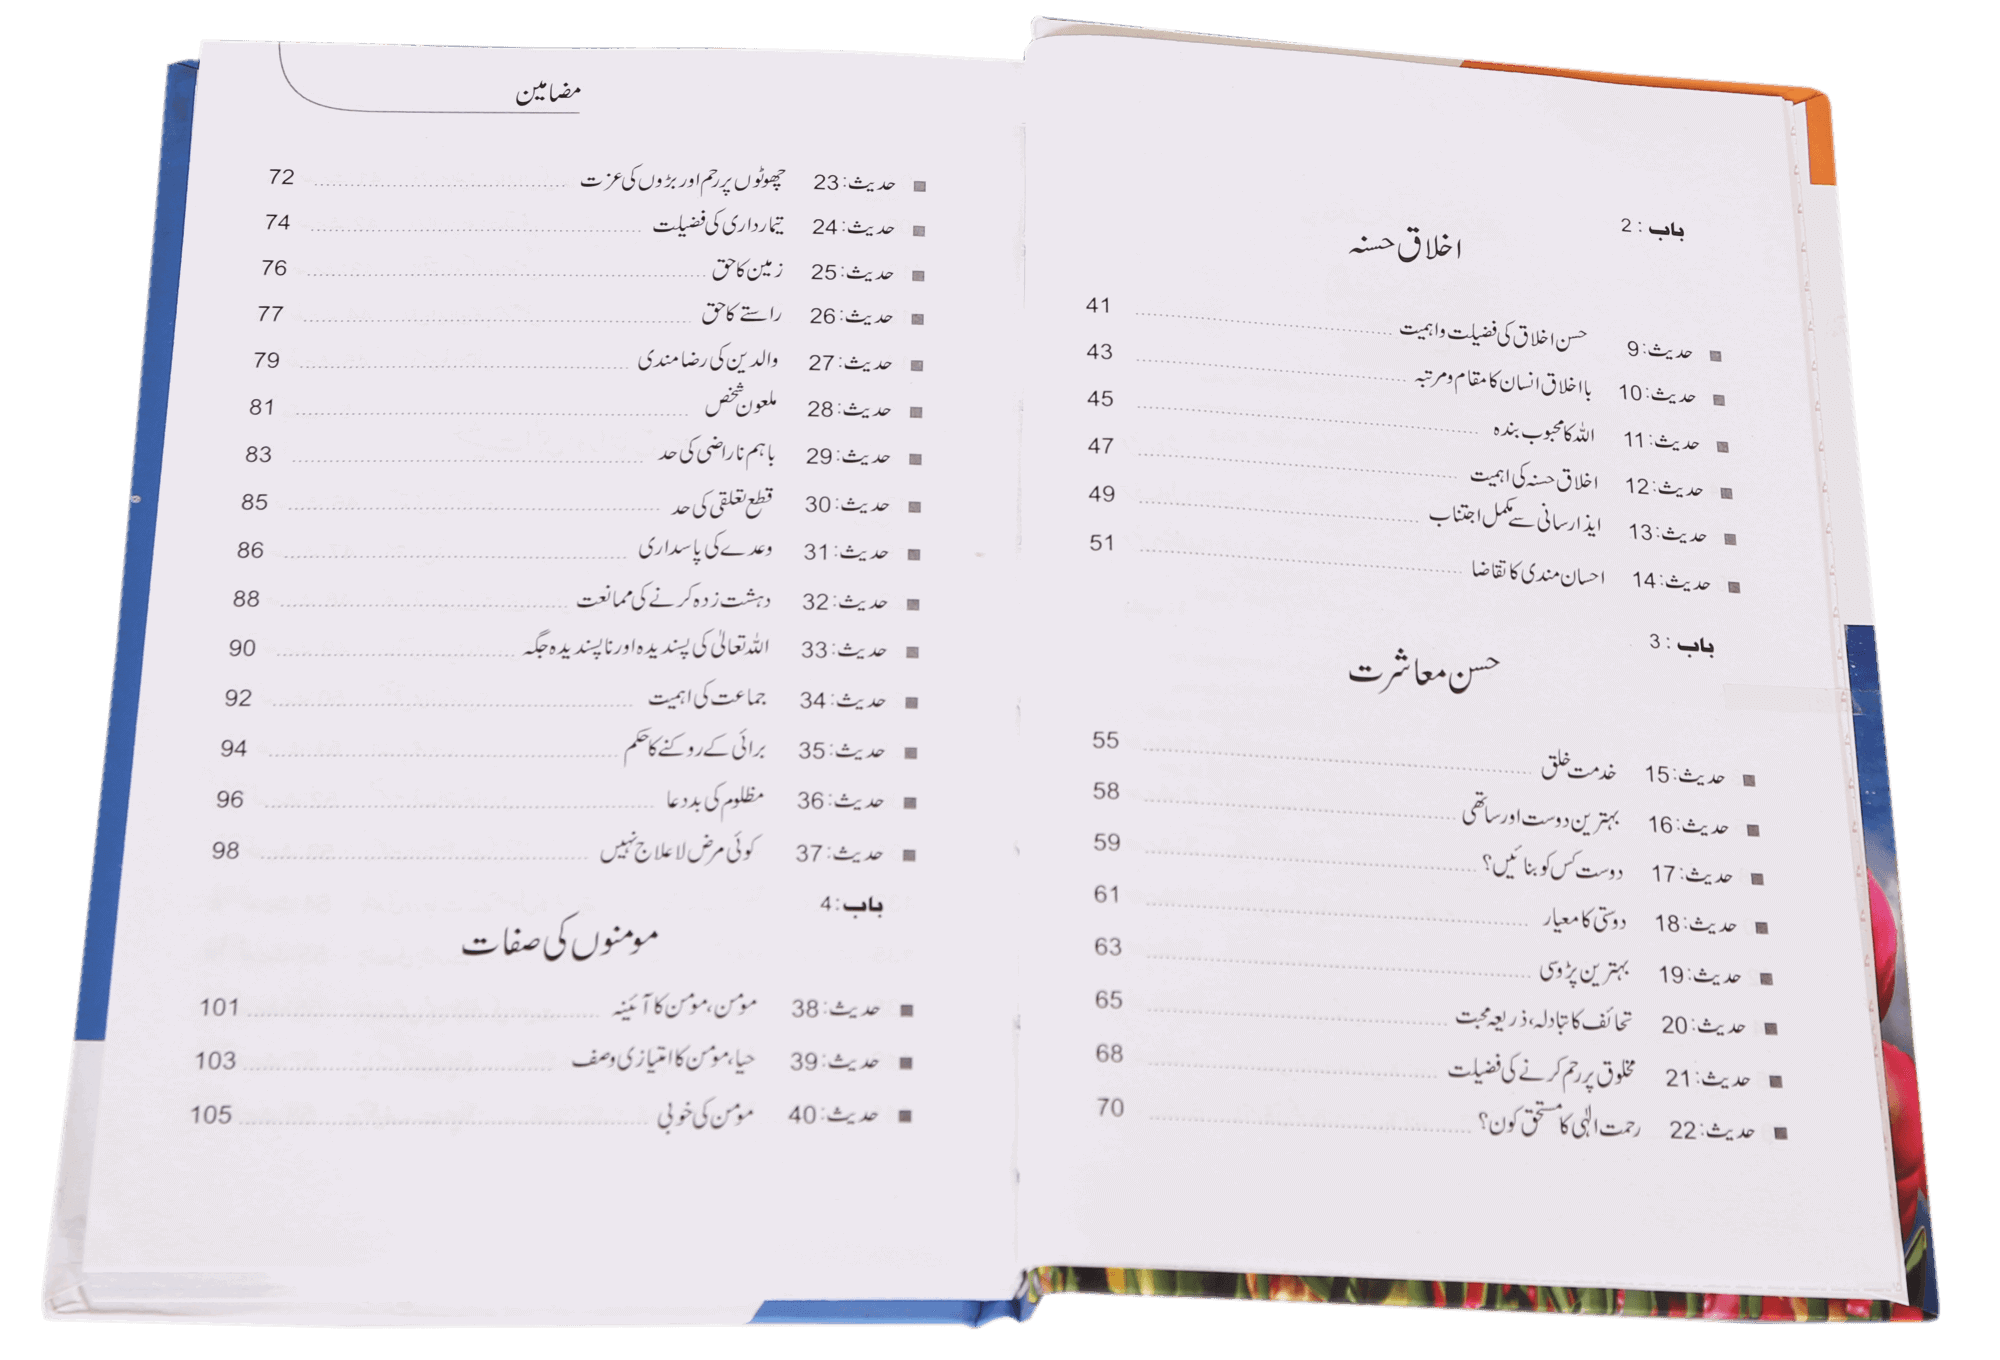 باب : 2
اخلاق حسنہ
حدیث: 9 حسن اخلاق کی فضیلت و اہمیت 41
حدیث: 10 با اخلاق انسان کا مقام و مرتبہ 43
حدیث: 11 اللہ کا محبوب بندہ 45
حدیث: 12 اخلاق حسنہ کی اہمیت 47
حدیث: 13 ایذا رسانی سے مکمل اجتناب 49
حدیث: 14 احسان مندی کا تقاضا 51
باب : 3
حسن معاشرت
حدیث: 15 خدمت خلق 55
حدیث: 16 بہترین دوست اور ساتھی 58
حدیث: 17 دوست کس کو بنائیں؟ 59
حدیث: 18 دوستی کا معیار 61
حدیث: 19 بہترین پڑوسی 63
حدیث: 20 تحائف کا تبادلہ، ذریعہ محبت 65
حدیث: 21 مخلوق پر رحم کرنے کی فضیلت 68
حدیث: 22 رحمت الٰہی کا مستحق کون؟ 70
مضامین
حدیث: 23 چھوٹوں پر رحم اور بڑوں کی عزت 72
حدیث: 24 تیمارداری کی فضیلت 74
حدیث: 25 زمین کا حق 76
حدیث: 26 راستے کا حق 77
حدیث: 27 والدین کی رضامندی 79
حدیث: 28 ملعون شخص 81
حدیث: 29 باہم ناراضی کی حد 83
حدیث: 30 قطع تعلقی کی حد 85
حدیث: 31 وعدے کی پاسداری 86
حدیث: 32 دہشت زدہ کرنے کی ممانعت 88
حدیث: 33 اللہ تعالیٰ کی پسندیدہ اور ناپسندیدہ جگہ 90
حدیث: 34 جماعت کی اہمیت 92
حدیث: 35 برائی کے روکنے کا حکم 94
حدیث: 36 مظلوم کی بددعا 96
حدیث: 37 کوئی مرض لاعلاج نہیں 98
باب: 4
مومنوں کی صفات
حدیث: 38 مومن، مومن کا آئینہ 101
حدیث: 39 حیا، مومن کا امتیازی وصف 103
حدیث: 40 مومن کی خوبی 105